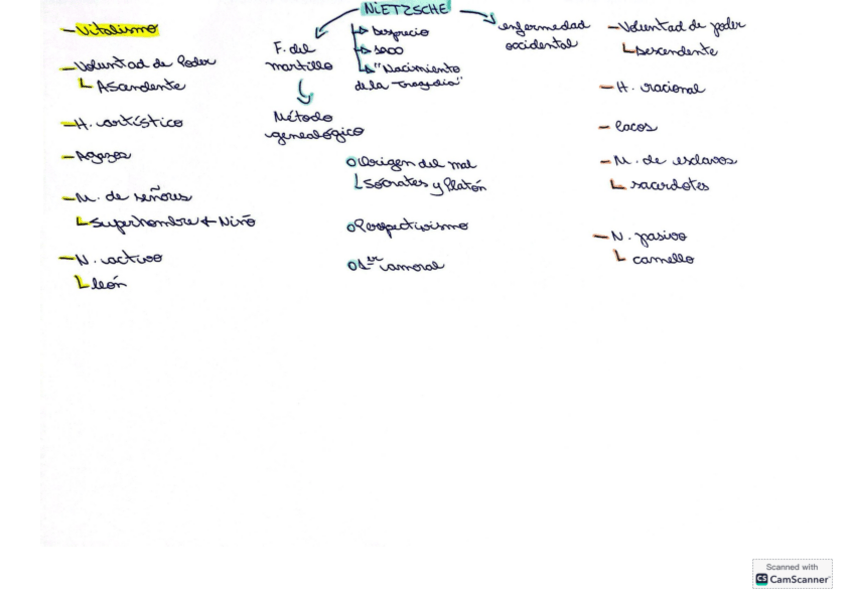 NIETZSCHE
- Vitalismo
- Voluntad de Poder
Ascendente
- H. artístico
- M. de señores
Superhombre + Niño
- N. activo
león
F. del
martillo
Método
genealógico
Desprecio
"Nacimiento
de la Tragedia"
Origen del mal
Sócrates y Platón
Perspectivismo
amoral
enfermedad
occidental
- Voluntad de poder
Descendente
- H. racional
- M. de esclavos
sacerdotes
- N. pasivo
camello
Scanned with
CS CamScanner